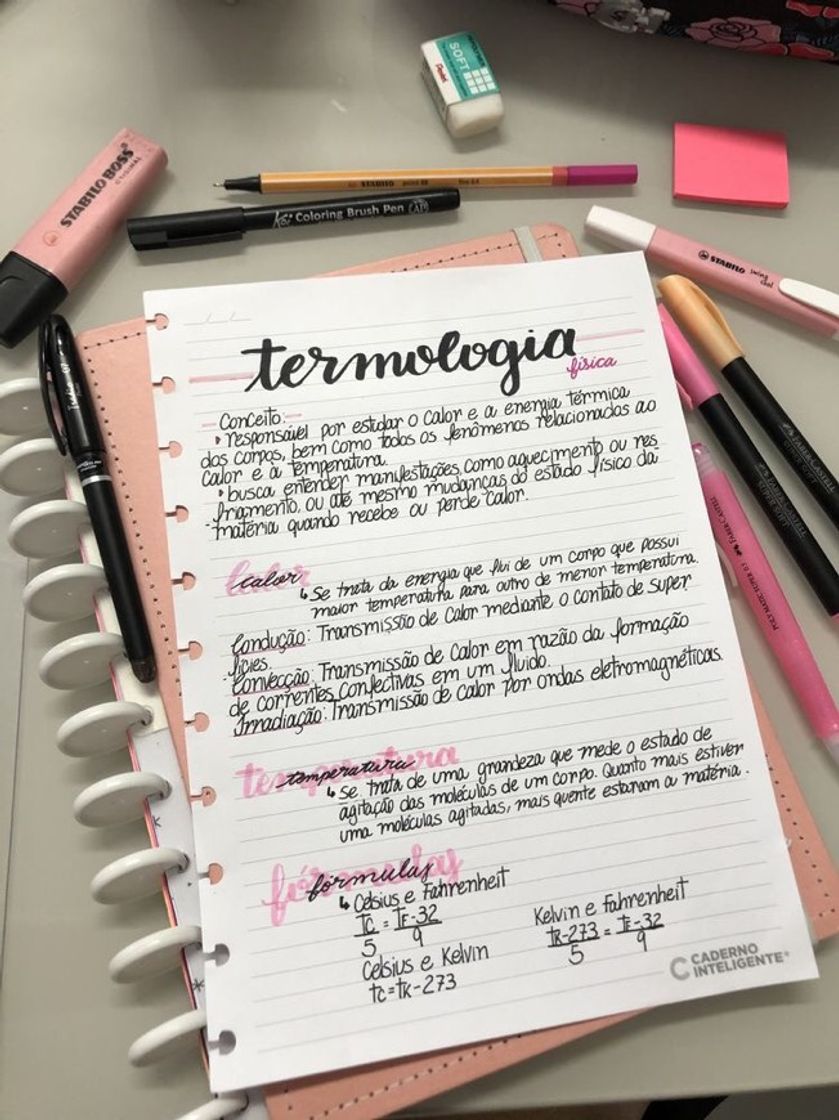 SOFT
Pentel
STABILO BOSS
ORIGINAL
STABILO point 88 fine 0.4
Koi Coloring Brush Pen AP
STABILO swing cool
termologia
física
Conceito:
• responsável por estudar o calor e a energia térmica
dos corpos, bem como todos os fenômenos relacionados ao
calor e à temperatura.
• busca entender manifestações como aquecimento ou res
-friamento, ou até mesmo mudanças do estado físico da
matéria quando recebe ou perde calor.
calor
calor
↳ Se trata da energia que flui de um corpo que possui
maior temperatura para outro de menor temperatura.
Condução: Transmissão de calor mediante o contato de super
-fícies.
Convecção: Transmissão de calor em razão da formação
de correntes confectivas em um fluido.
Irradiação: Transmissão de calor por ondas eletromagnéticas.
temperatura
temperatura
↳ Se trata de uma grandeza que mede o estado de
agitação das moléculas de um corpo. Quanto mais estiver
uma moléculas agitadas, mais quente estaram a matéria.
fórmulas
fórmulas
↳ Celsius e Fahrenheit
Tc = TF-32
5 9
Celsius e Kelvin
tc=tk-273
Kelvin e Fahrenheit
tk-273 = tF-32
5 9
CADERNO
INTELIGENTE®
FABER-CASTELL
POLY MATIC SUPER 0.7 FABER-CASTELL